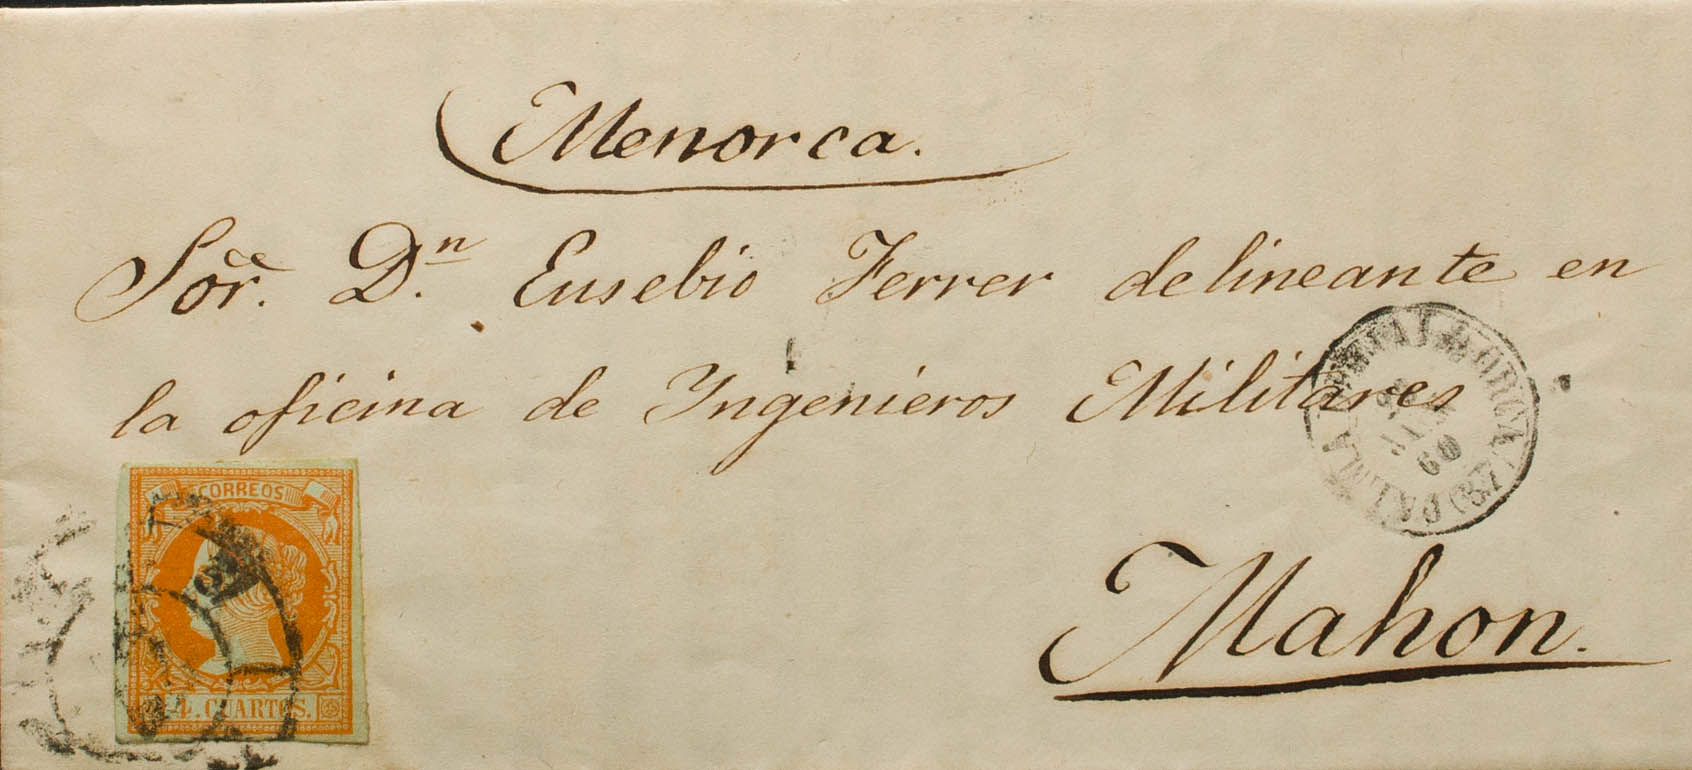 Menorca.
Sor. Dn. Eusebio Ferrer delineante en
la oficina de Ingenieros Militares
Mahon.
CORREOS
4. CUARTOS.
PALMA
60